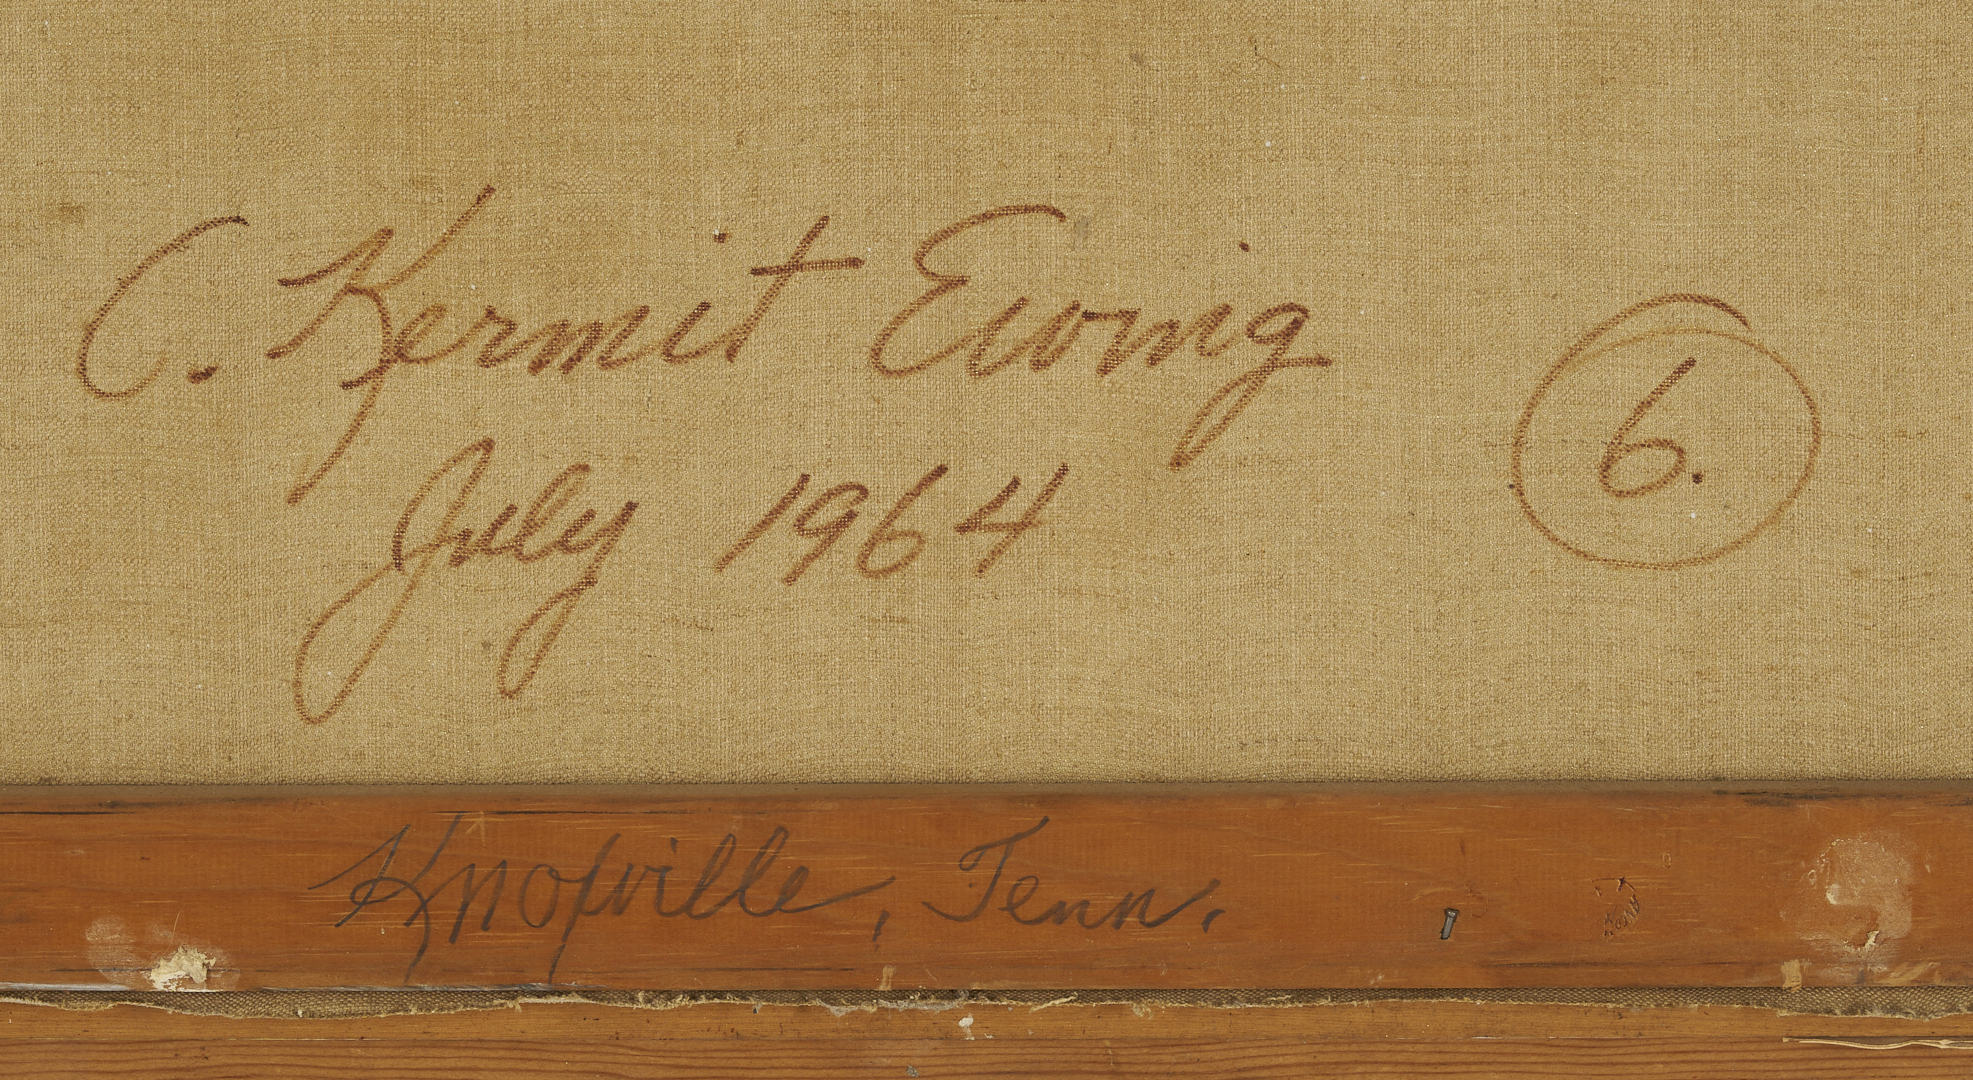 C. Kermit Ewing
July 1964
6.
Knoxville, Tenn.